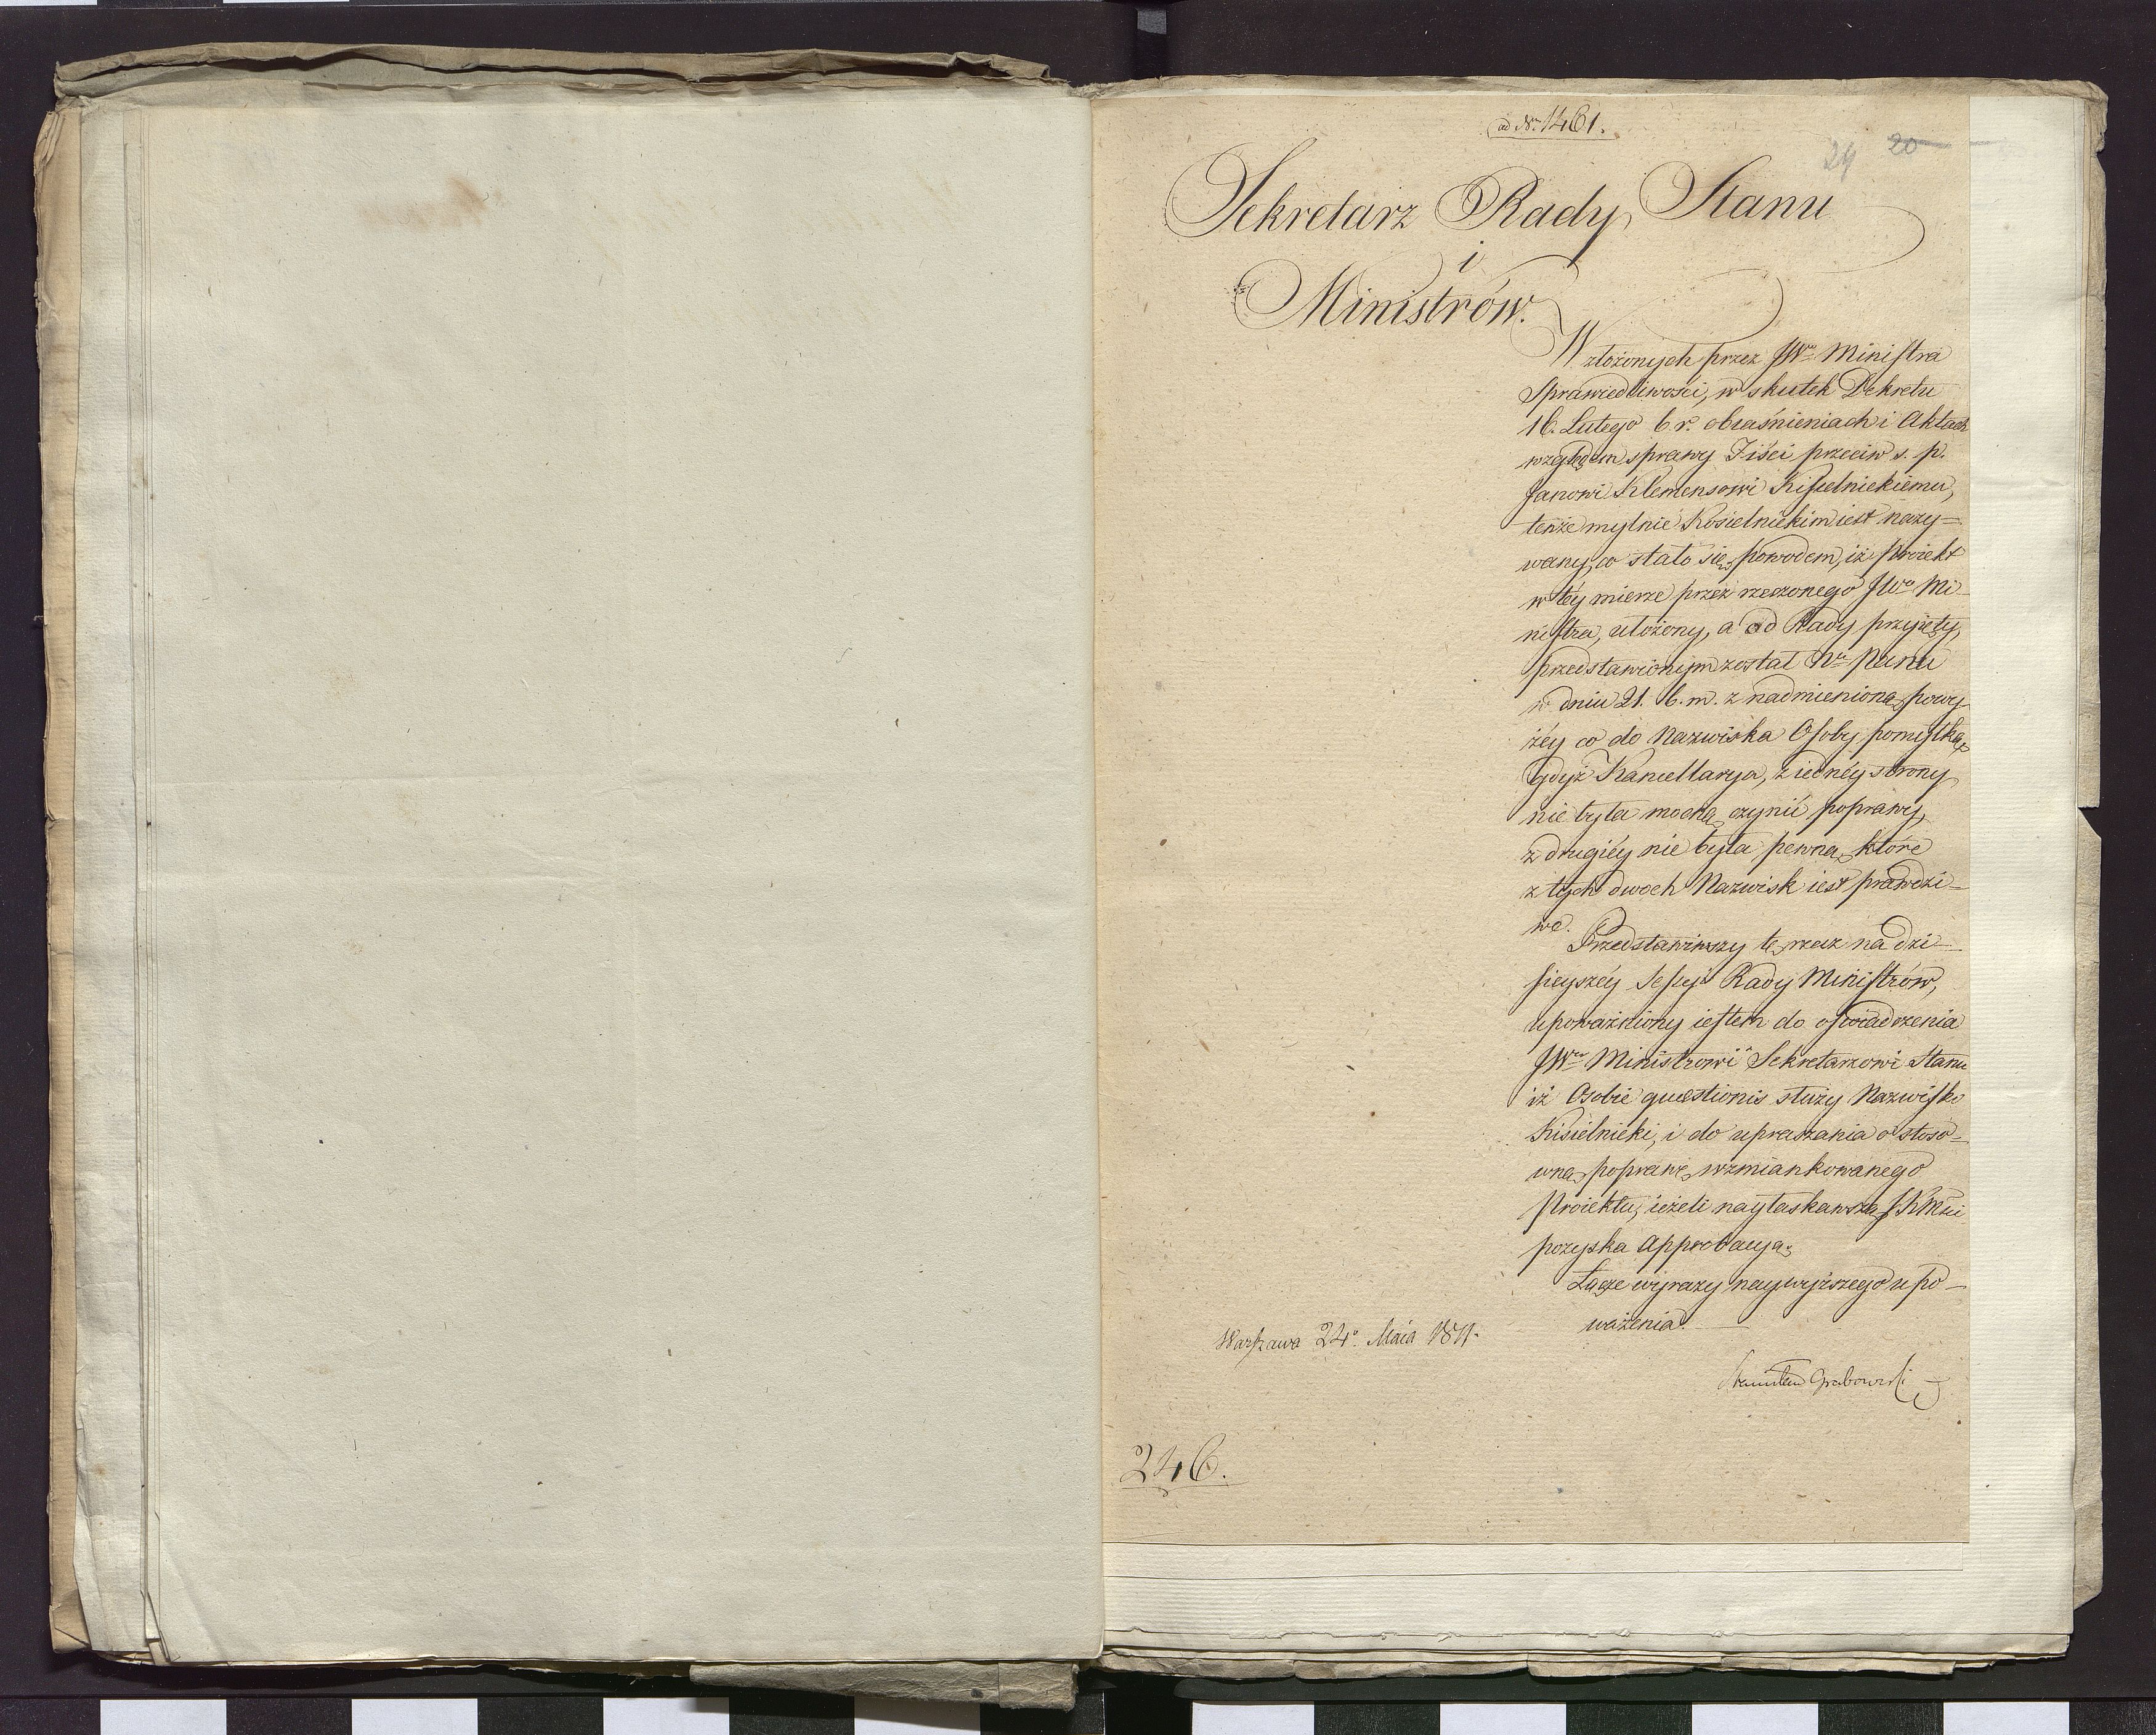 ad Nr. 1461.
29 20
Sekretarz Rady Stanu
i
Ministrów.
W złożonych przez JWo Ministra
Sprawiedliwości, w skutek Dekretu
16. Lutego b. r. obiaśnieniach i Aktach
względem sprawy Ziści przeciw s. p.
Janowi Klemensowi Kisielnickiemu,
tenże mylnie Kosielnickim iest nazy=
wany, co stało się powodem, iż Proiekt
w téy mierze przez rzeczonego JWo Mi-
nistra, ułożony, a od Rady przyięty,
przedstawionym został Nu Panu
w dniu 21. b. m. z nadmienioną powy-
żéy co do Nazwiska Osoby pomyłką,
gdyż Kancellarya, z iednéy strony
nie była mocną czynić poprawy,
z drugiéy nie była pewną, które
z tych dwoch Nazwisk iest prawdzi-
we.
Przedstawiwszy tę rzecz na dzi-
sieyszéy Sessyi Rady Ministrów,
upoważniony iestem do oświadczenia
JWmu Ministrowi Sekretarzowi Stanu
iż Osobie quaestionis służy Nazwisko
Kisielnicki, i do upraszania o stoso-
wną poprawę wzmiankowanego
Proiektu, ieżeli nayłaskawszą JKMci
pozyska Approbacyą.
Łączę wyrazy naywyższego upo-
ważenia.
Warszawa 24o. Maia 1811.
Stanisław Grabowski
246.